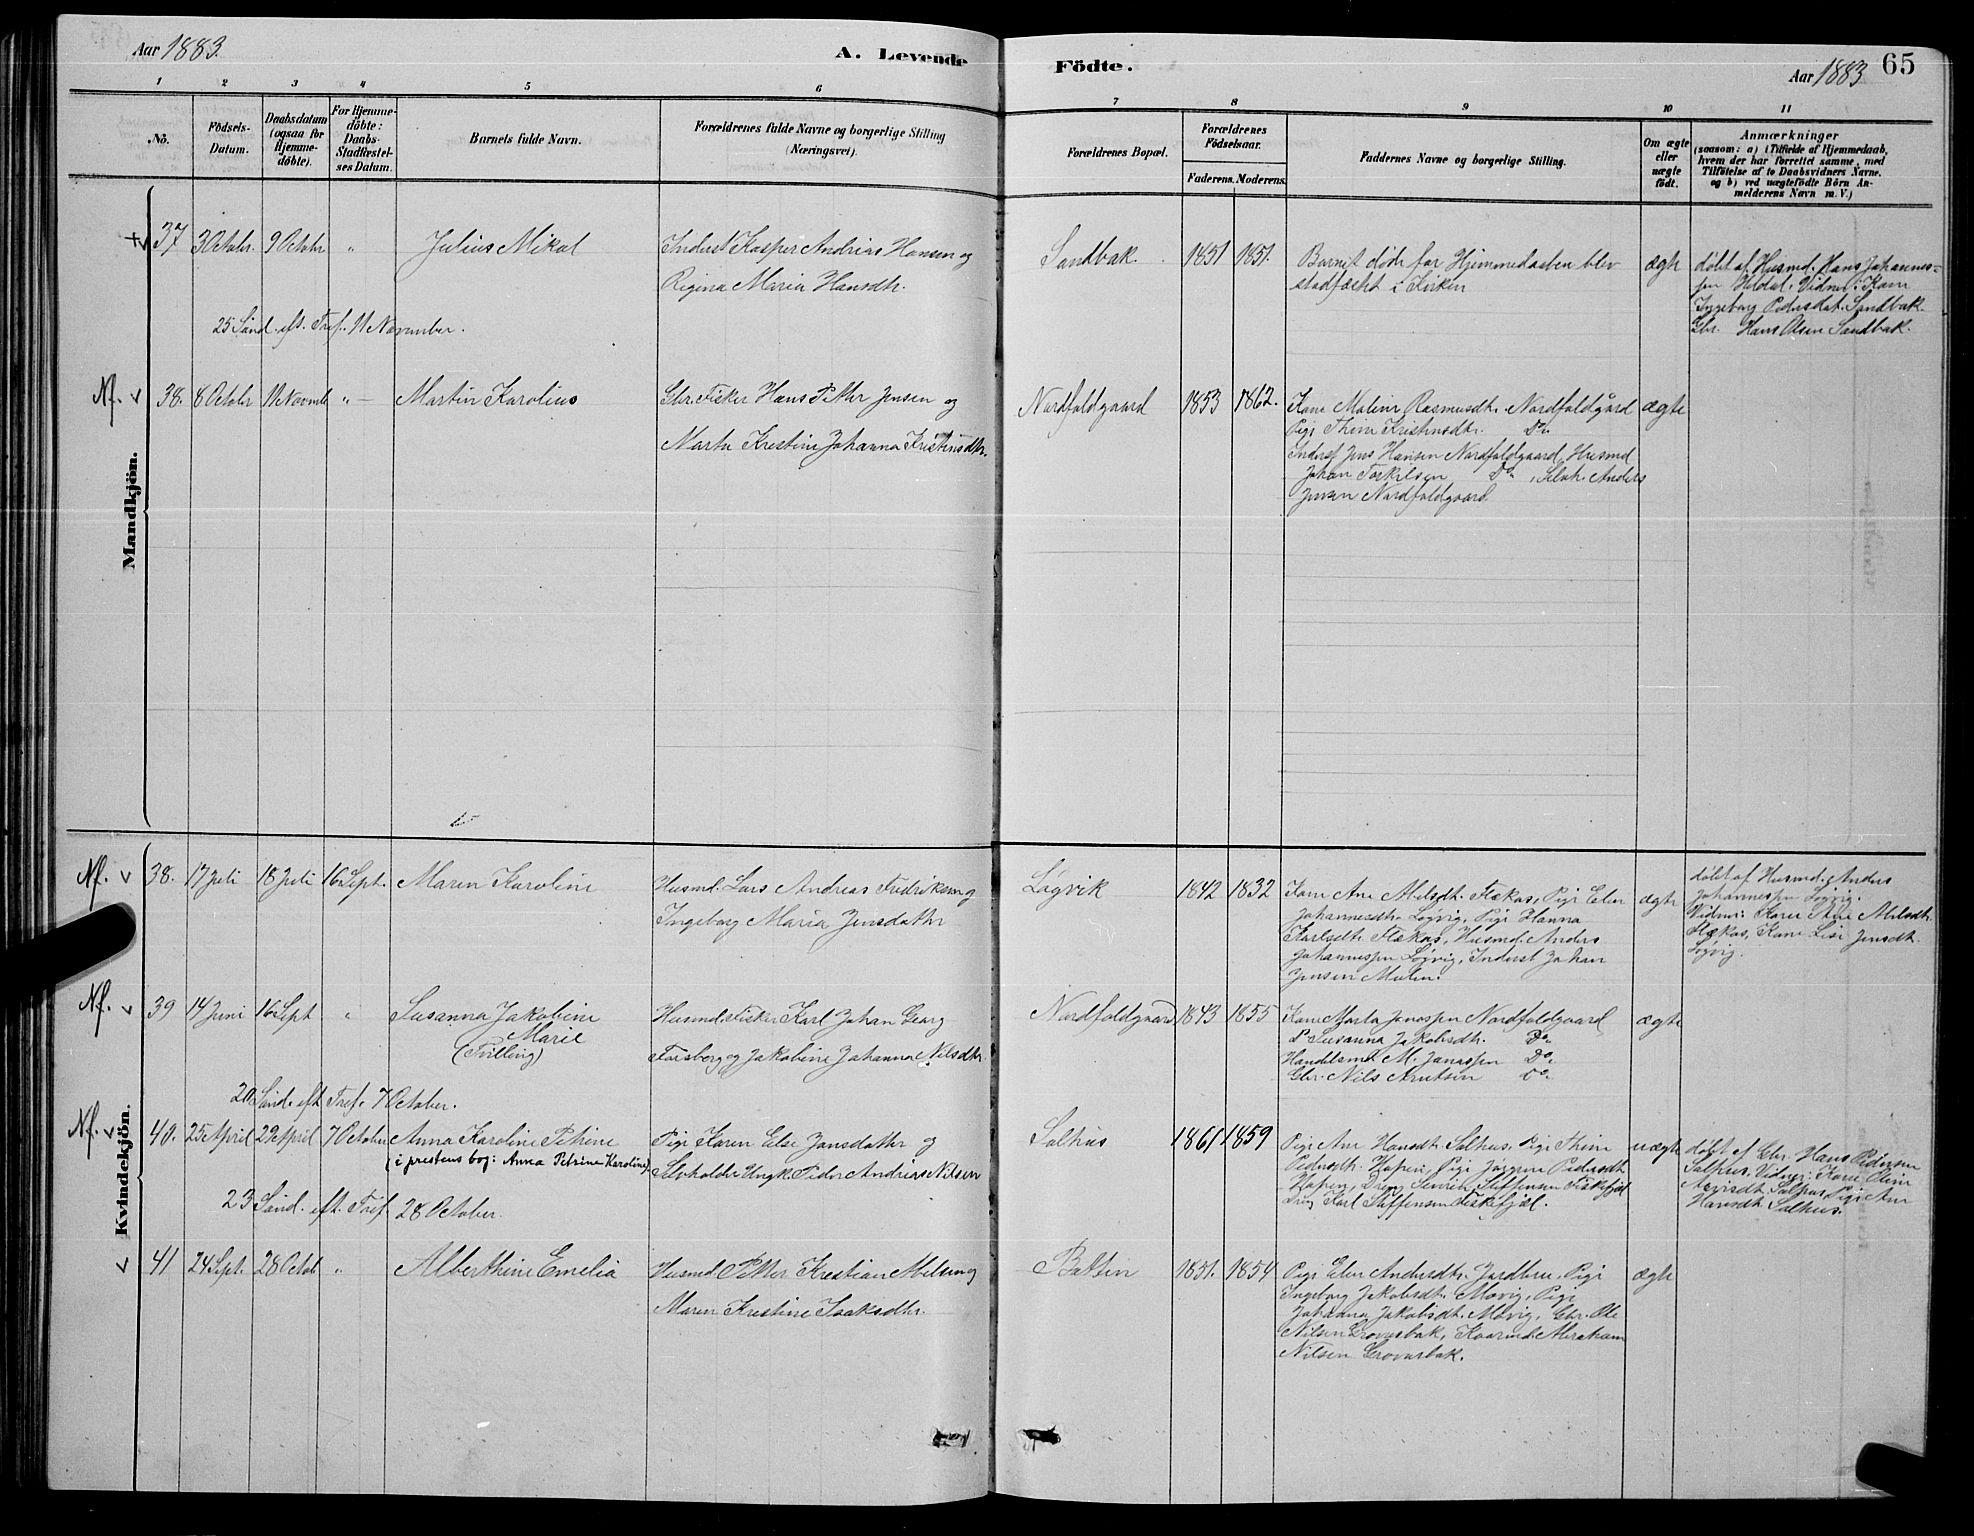 Aar 1883.
A. Levende
Födte.
Aar 1883
65
1 2 3 4 5 6
7 8 9 10 11
No.
Födsels-
Datum.
Daabsdatum
(ogsaa for
Hjemme-
döbte).
For Hjemme-
döbte:
Daabs-
Stadfæstel-
ses Datum.
Barnets fulde Navn.
Forældrenes fulde Navne og borgerlige Stilling
(Næringsvei).
Forældrenes Bopæl.
Forældrenes
Födselsaar.
Faderens. Moderens.
Faddernes Navne og borgerlige Stilling.
Om ægte
eller
uægte
födt.
Anmærkninger
(saasom: a) i Tilfælde af Hjemmedaab,
hvem der har forrettet samme, med
Tilföielse af to Daabsvidners Navne.
og b) ved uægtefödte Börn An-
melderens Navn m.V.)
Mandkjön.
37 3 Octobr. 9 Octobr " Julius Mikal
Inderst Kasper Andrias Hansen og
Regina Maria Hansdtr.
Sandbak. 1851 1851.
Barnet døde før Hjemmedaaben blev
stadfæstet i Kirken
ægte
døbt af Husmd. Hans Johannes-
sen Vidner: Kone
Ingeborg Pedersdat. Sandbak.
Gbr. Hans Olsen Sandbak.
25 Sønd. eft. Tref. 11 November.
Nf. v 38. 8 Octobr 11 Novemb " Martin Karolius
Gbr. Fisker Hans Pitter Jensen og
Marta Kristine Johanna Kristensdtr.
Nordfoldgaard 1853 1862.
Kone Maline Rasmusdt. Nordfoldgård
Pige Thrine Kristensdtr. Do.
Inderst Jens Hansen Nordfoldgaard, Husmd
Johan Torkilsen Do, Selvh. Anders
Jensen Nordfoldgaard.
ægte
Kvindekjön.
Nf. v 38. 17 Juli 18 Juli 16 Sept. Maren Karoline
Husmd. Lars Andreas Fredriksen og
Ingeborg Maria Jensdatter
Løgvik 1842 1832
Kone Ane Abelsdt. Flekas, Pige Elen
Johannesdtr Løgvig, Pige Hanna
Karlsdt. Flekas, Husmd. Anders
Johannessen Løgvig, Inderst Johan
Jensen
ægte
døbt af Husmd. Anders
Johannessen Løgvig.
Vidner: Kone Ane Abelsdt.
Flekas, Kone Lisi Jensdt.
Løgvig.
Nf. v 39 14 Juni 16 Sept " Susanna Jakobine
Marie
(Tvilling)
Husmd. Fisker Karl Johan Georg
Forsberg og Jakobine Johanna Nilsdtr.
Nordfoldgaard 1843 1855
Kone Marta Jonassen Nordfoldgaard
Do Susanna Jakobsdtr. Do.
Handelsmd M. Jonassen Do.
Gbr. Nils Arntsen Do.
ægte
20 Sønd. eft Tref. 7 October.
Nf. v 40. 25 April 29 April 7 October Anna Karoline Petrine
(i prestens bog: Anna Petrine Karoline)
Pige Karen Else Jensdatter og
Selvholdne Ungk. Peder Andreas Nilsen
Salhus 1861 1859
Pige Ane Hansdt. Salhus, Pige Thrine
Pedersdt. Hopen, Pige Jørgine Pedersdt
Hopen, Dreng Sevrin Steffensen Fiskefjæl
Dreng Karl Steffensen Fiskefjæl.
uægte
døbt af Gbr. Hans Pedersen
Salhus. Vidner: Kone Oline
Salhus, Pige Ane
Hansdt. Salhus.
23 Sønd. eft. Tref. 28 October.
v 41 24 Sept. 28 Octob " Alberthine Emelia
Husmd. Pitter Kristian Abelsen og
Maren Kristine Isaksdtr.
Botten 1851. 1854
Pige Elen Andersdt. Jordbru, Pige
Ingeborg Jakobsdt. Movig, Pige
Johanna Jakobsdt. Movig, Gbr. Ole
Nilsen Grovasbak, Kaarmd. Abraham
Nilsen Grovasbak.
ægte